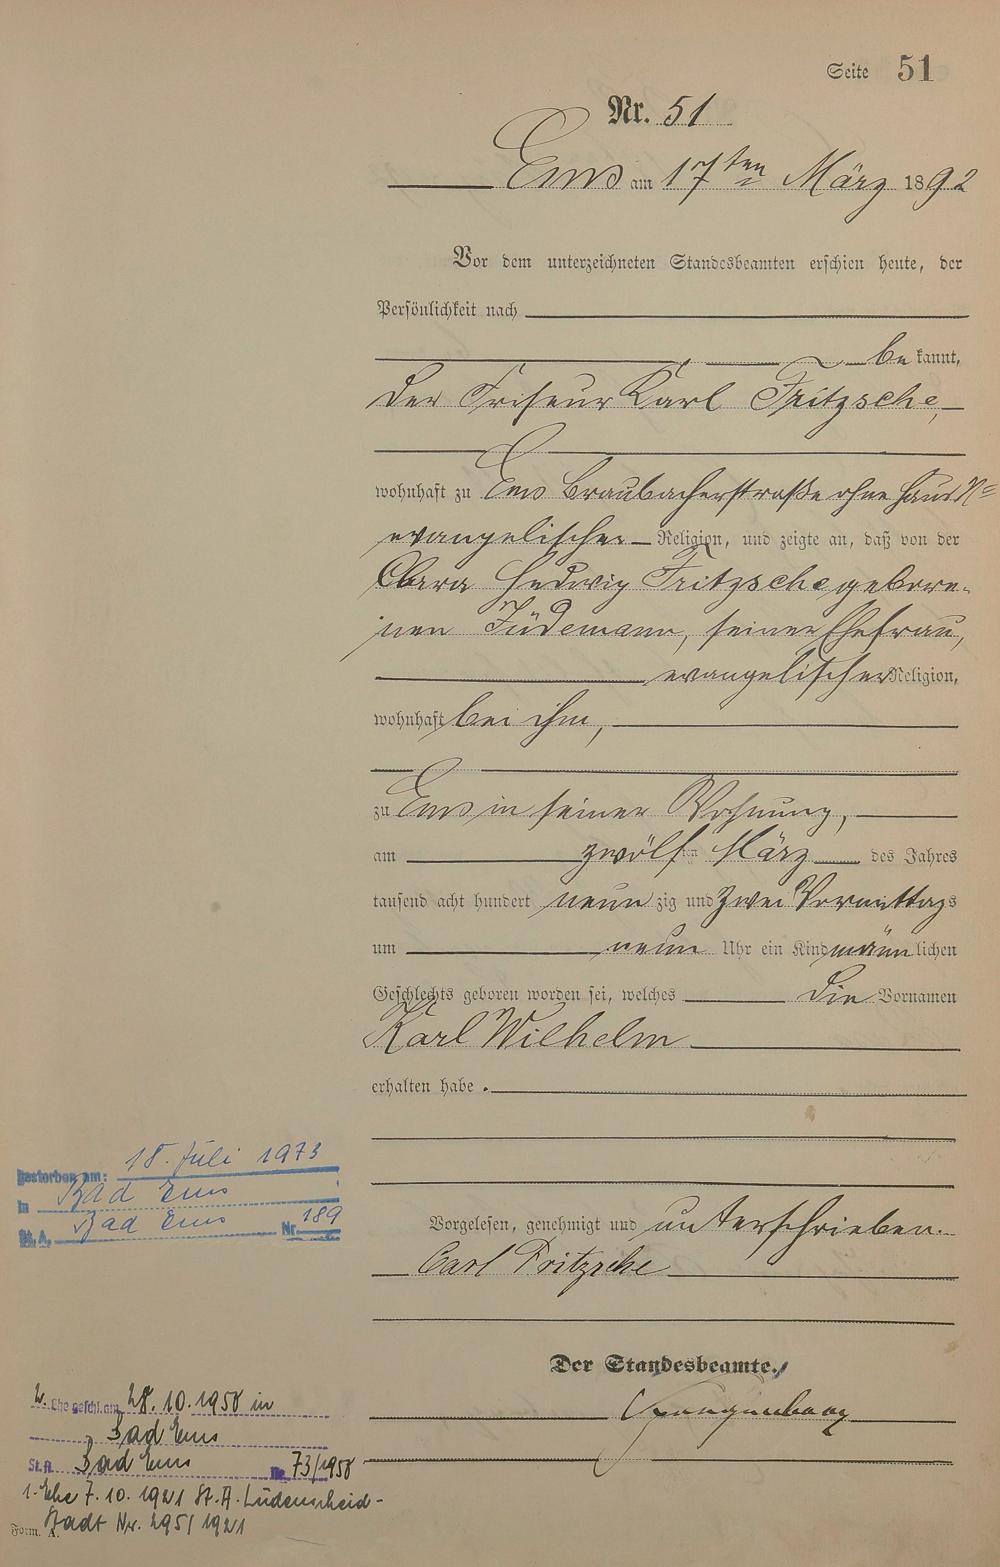 Seite 51
Nr. 51
Ems am 17ten März 1892
Vor dem unterzeichneten Standesbeamten erschien heute, der
Persönlichkeit nach
bekannt,
der Friseur Karl Fritzsche,
wohnhaft zu Ems Braubacherstraße ohne Haus No
evangelischer Religion, und zeigte an, daß von der
Clara Hedwig Fritzsche gebore-
nen Jüdemann, seiner Ehefrau,
evangelischer Religion,
wohnhaft bei ihm,
zu Ems in seiner Wohnung,
am zwölften März des Jahres
tausend acht hundert neunzig und zwei Vormittags
um neun Uhr ein Kind männlichen
Geschlechts geboren worden sei, welches die Vornamen
Karl Wilhelm
erhalten habe.
Vorgelesen, genehmigt und unterschrieben.
Carl Fritzsche
Der Standesbeamte.
gestorben am: 18. Juli 1973
in Bad Ems
St. A. Bad Ems Nr. 189
2. Ehe geschl. am 28.10.1958 in
Bad Ems
St. A. Bad Ems Nr. 73/1958
1. Ehe 7.10.1921 St. A. Lüdenscheid-
Stadt Nr. 295/1921
Form. A.